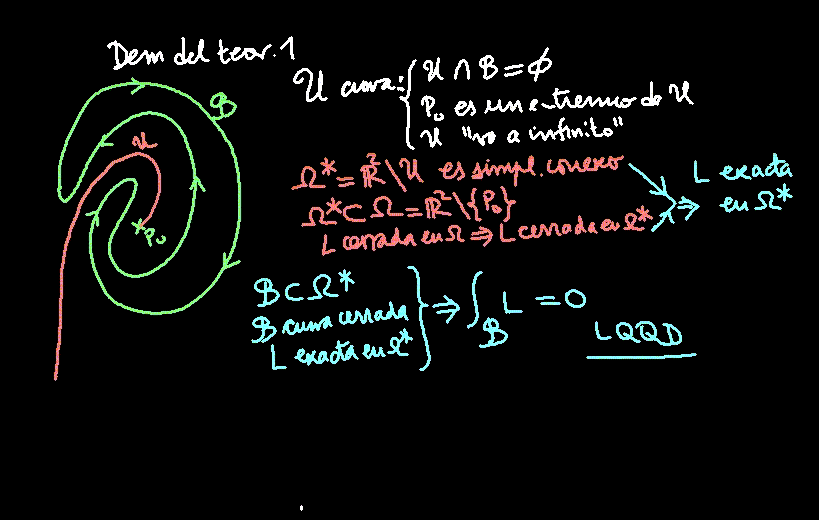 Dem del teor. 1
B
U curva: { U ∩ B = ∅
P₀ es un extremo de U
U "va a infinito"
U
P₀
Ω* = ℝ² \ U es simpl. conexo
Ω* ⊂ Ω = ℝ² \ {P₀}
L cerrada en Ω ⇒ L cerrada en Ω*
⇒ L exacta
en Ω*
B ⊂ Ω*
B curva cerrada
L exacta en Ω*
} ⇒ ∫_B L = 0
LQQD